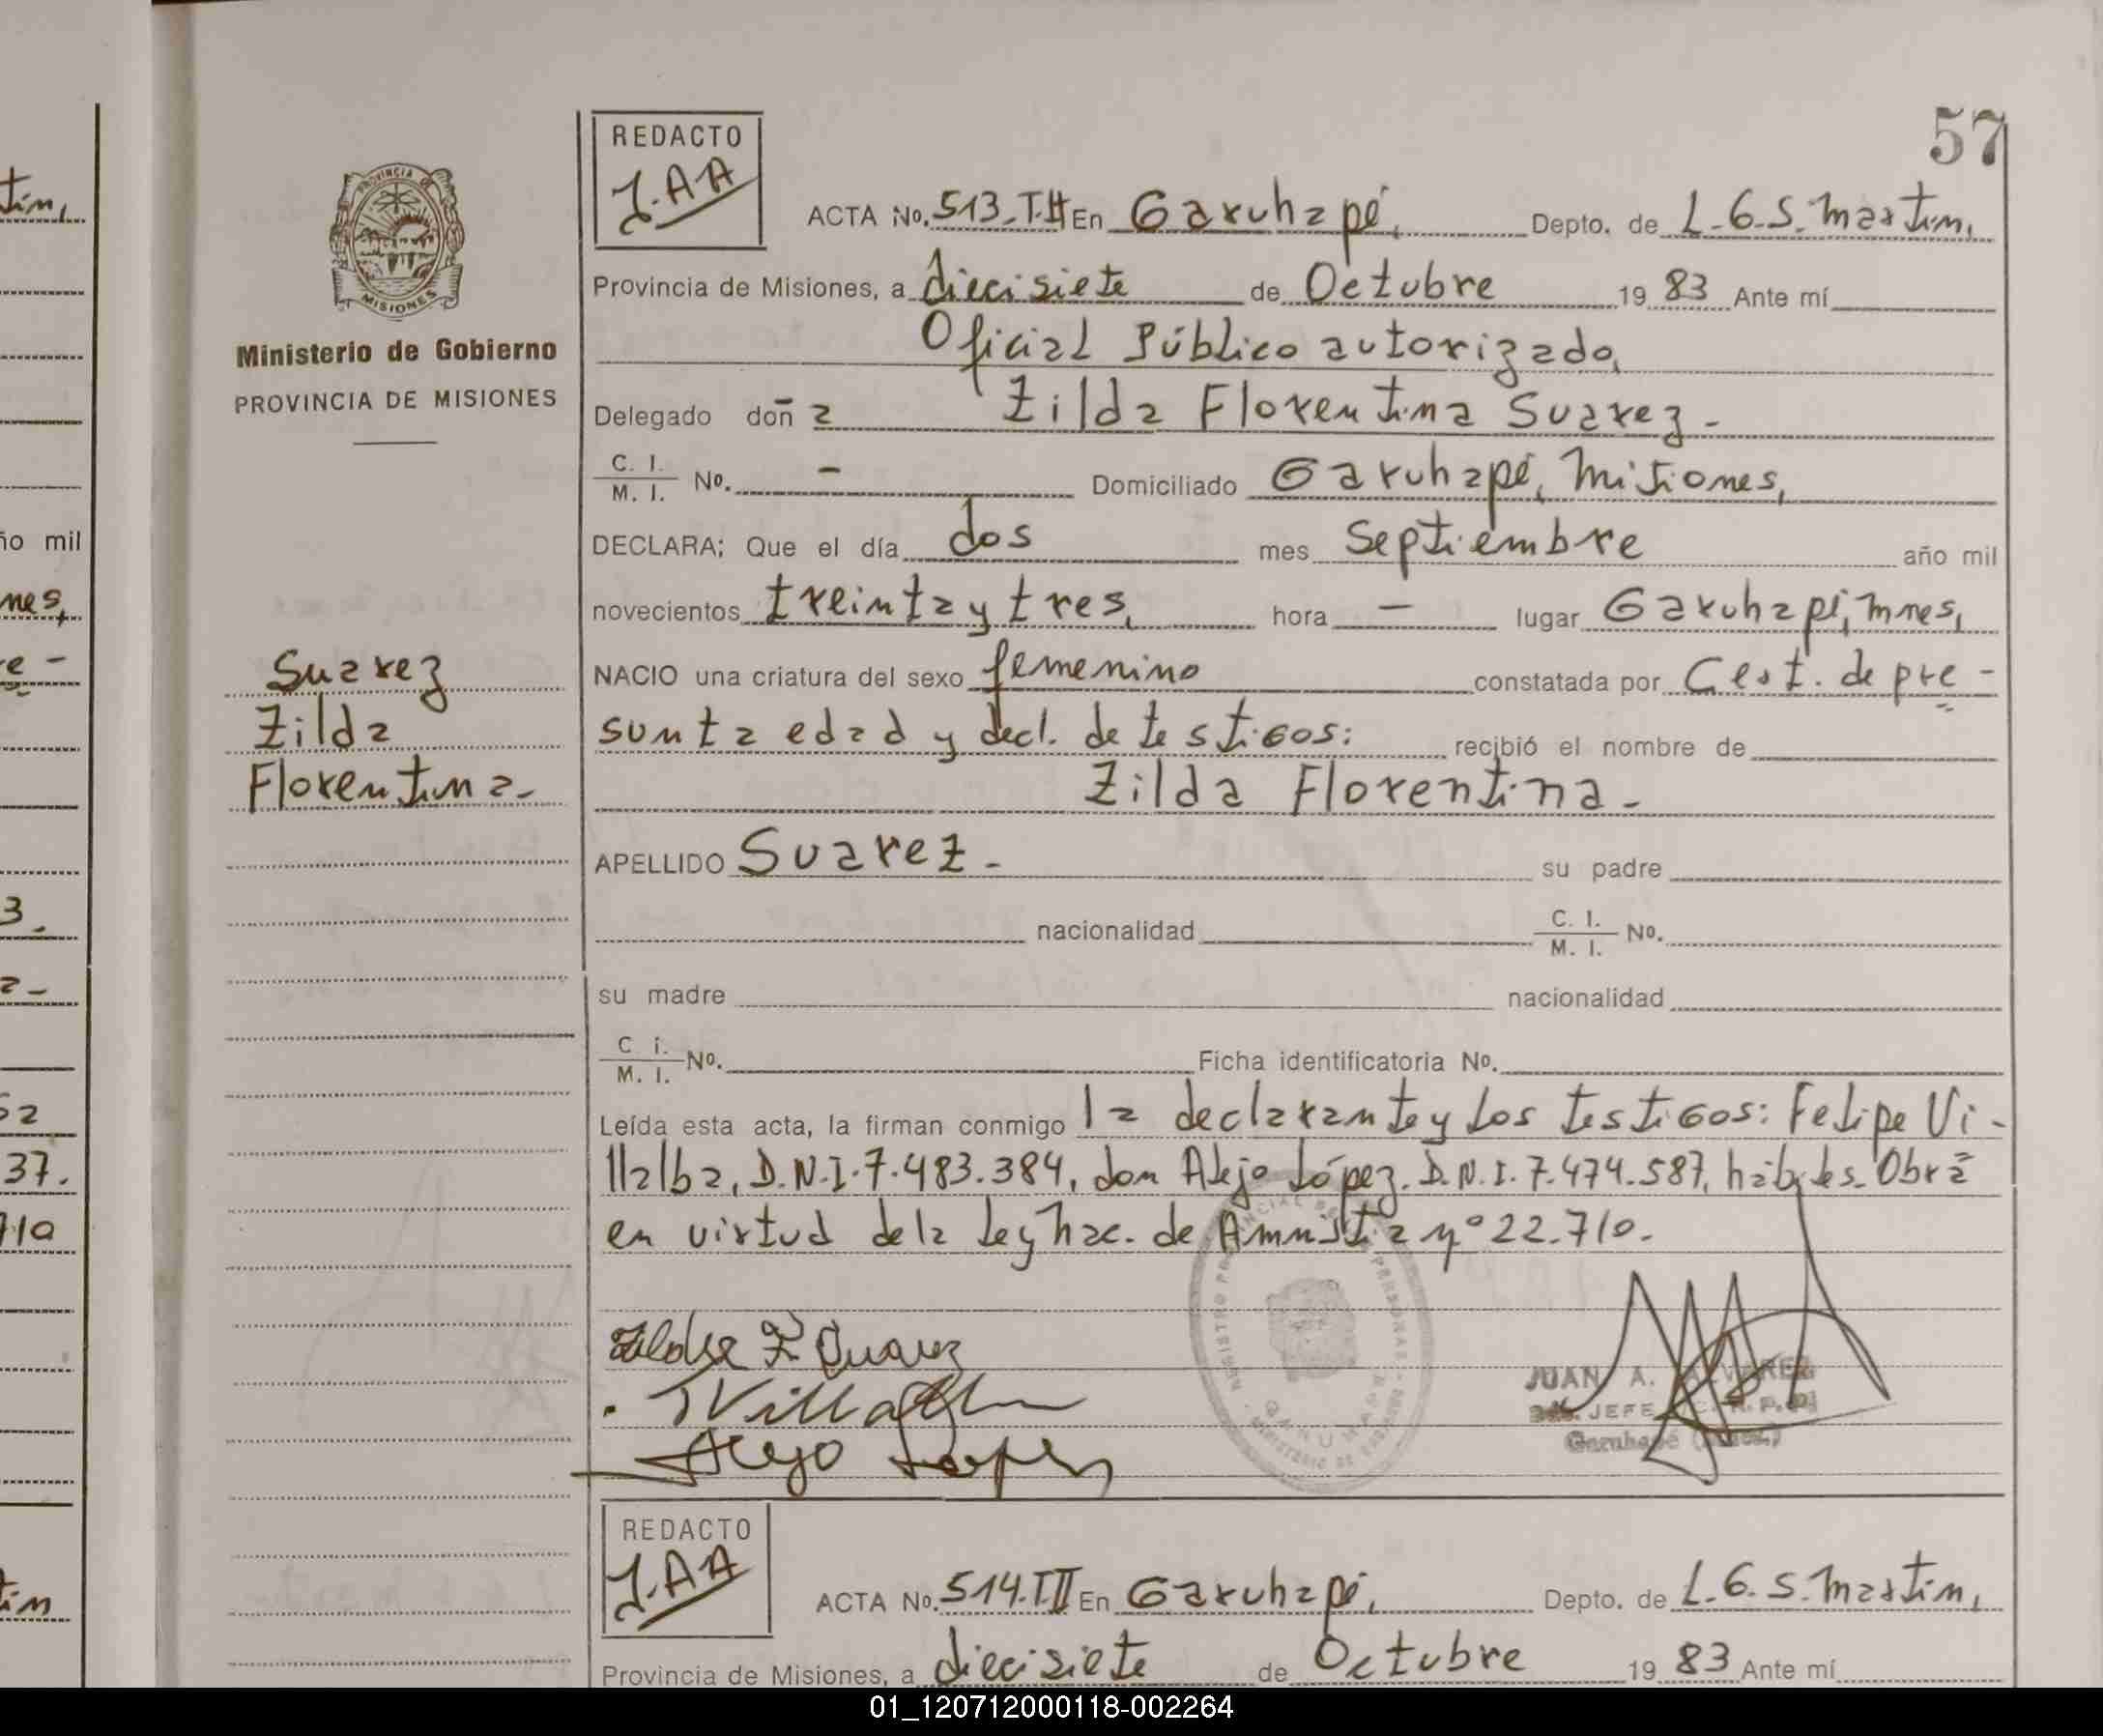 57
REDACTO
J.AA
ACTA No. 513.T.II En Garuhapé, Depto. de L.G.S. Martin,
PROVINCIA DE
MISIONES
Ministerio de Gobierno
PROVINCIA DE MISIONES
Provincia de Misiones, a diecisiete de Octubre 19 83 Ante mí
Oficial Público autorizado,
Delegado don̄ a Zilda Florentina Suarez -
C. I. / M. I. No. - Domiciliado Garuhapé, Misiones,
DECLARA; Que el día dos mes Septiembre año mil
novecientos treinta y tres, hora - lugar Garuhapé, Mnes,
Suarez
Zilda
Florentina -
NACIO una criatura del sexo femenino constatada por Cert. de pre -
sunta edad y decl. de testigos: recibió el nombre de
Zilda Florentina -
APELLIDO Suarez - su padre
nacionalidad C. I. / M. I. No.
su madre nacionalidad
C i. / M. I. No. Ficha identificatoria No.
Leída esta acta, la firman conmigo la declarante y los testigos: Felipe Vi -
llalba, D.N.I. 7.483.384, don Alejo López. D.N.I. 7.474.587, hábiles. Obra
en virtud de la Ley Nac. de Amnistia nº 22.710.
Zilda F Suarez
Villalba
Alejo Lopez
JUAN A. ALVAREZ
JEFE
Garuhapé
REDACTO
J.AA
ACTA No. 514.T.II En Garuhapé, Depto. de L.G.S. Martin,
Provincia de Misiones, a diecisiete de Octubre 19 83 Ante mí
tin,
ño mil
nes,
e -
3.
a -
62
37.
710
tin
01_120712000118-002264